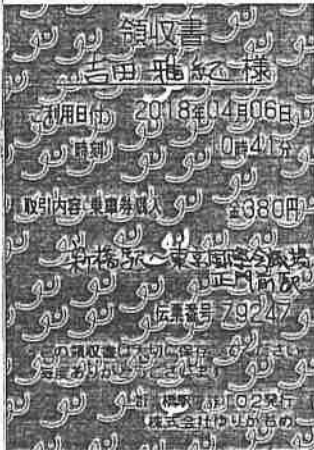 領収書
吉田 雅紀 様
利用日付 2018年04月06日
時刻 10時41分
取引内容 乗車券購入 金380円
新橋駅～東京国際会議場
正門前駅
伝票番号 79247
この領収書は大切に保存してください
毎度ありがとうございます
新橋駅 券F02発行
株式会社ゆりかもめ